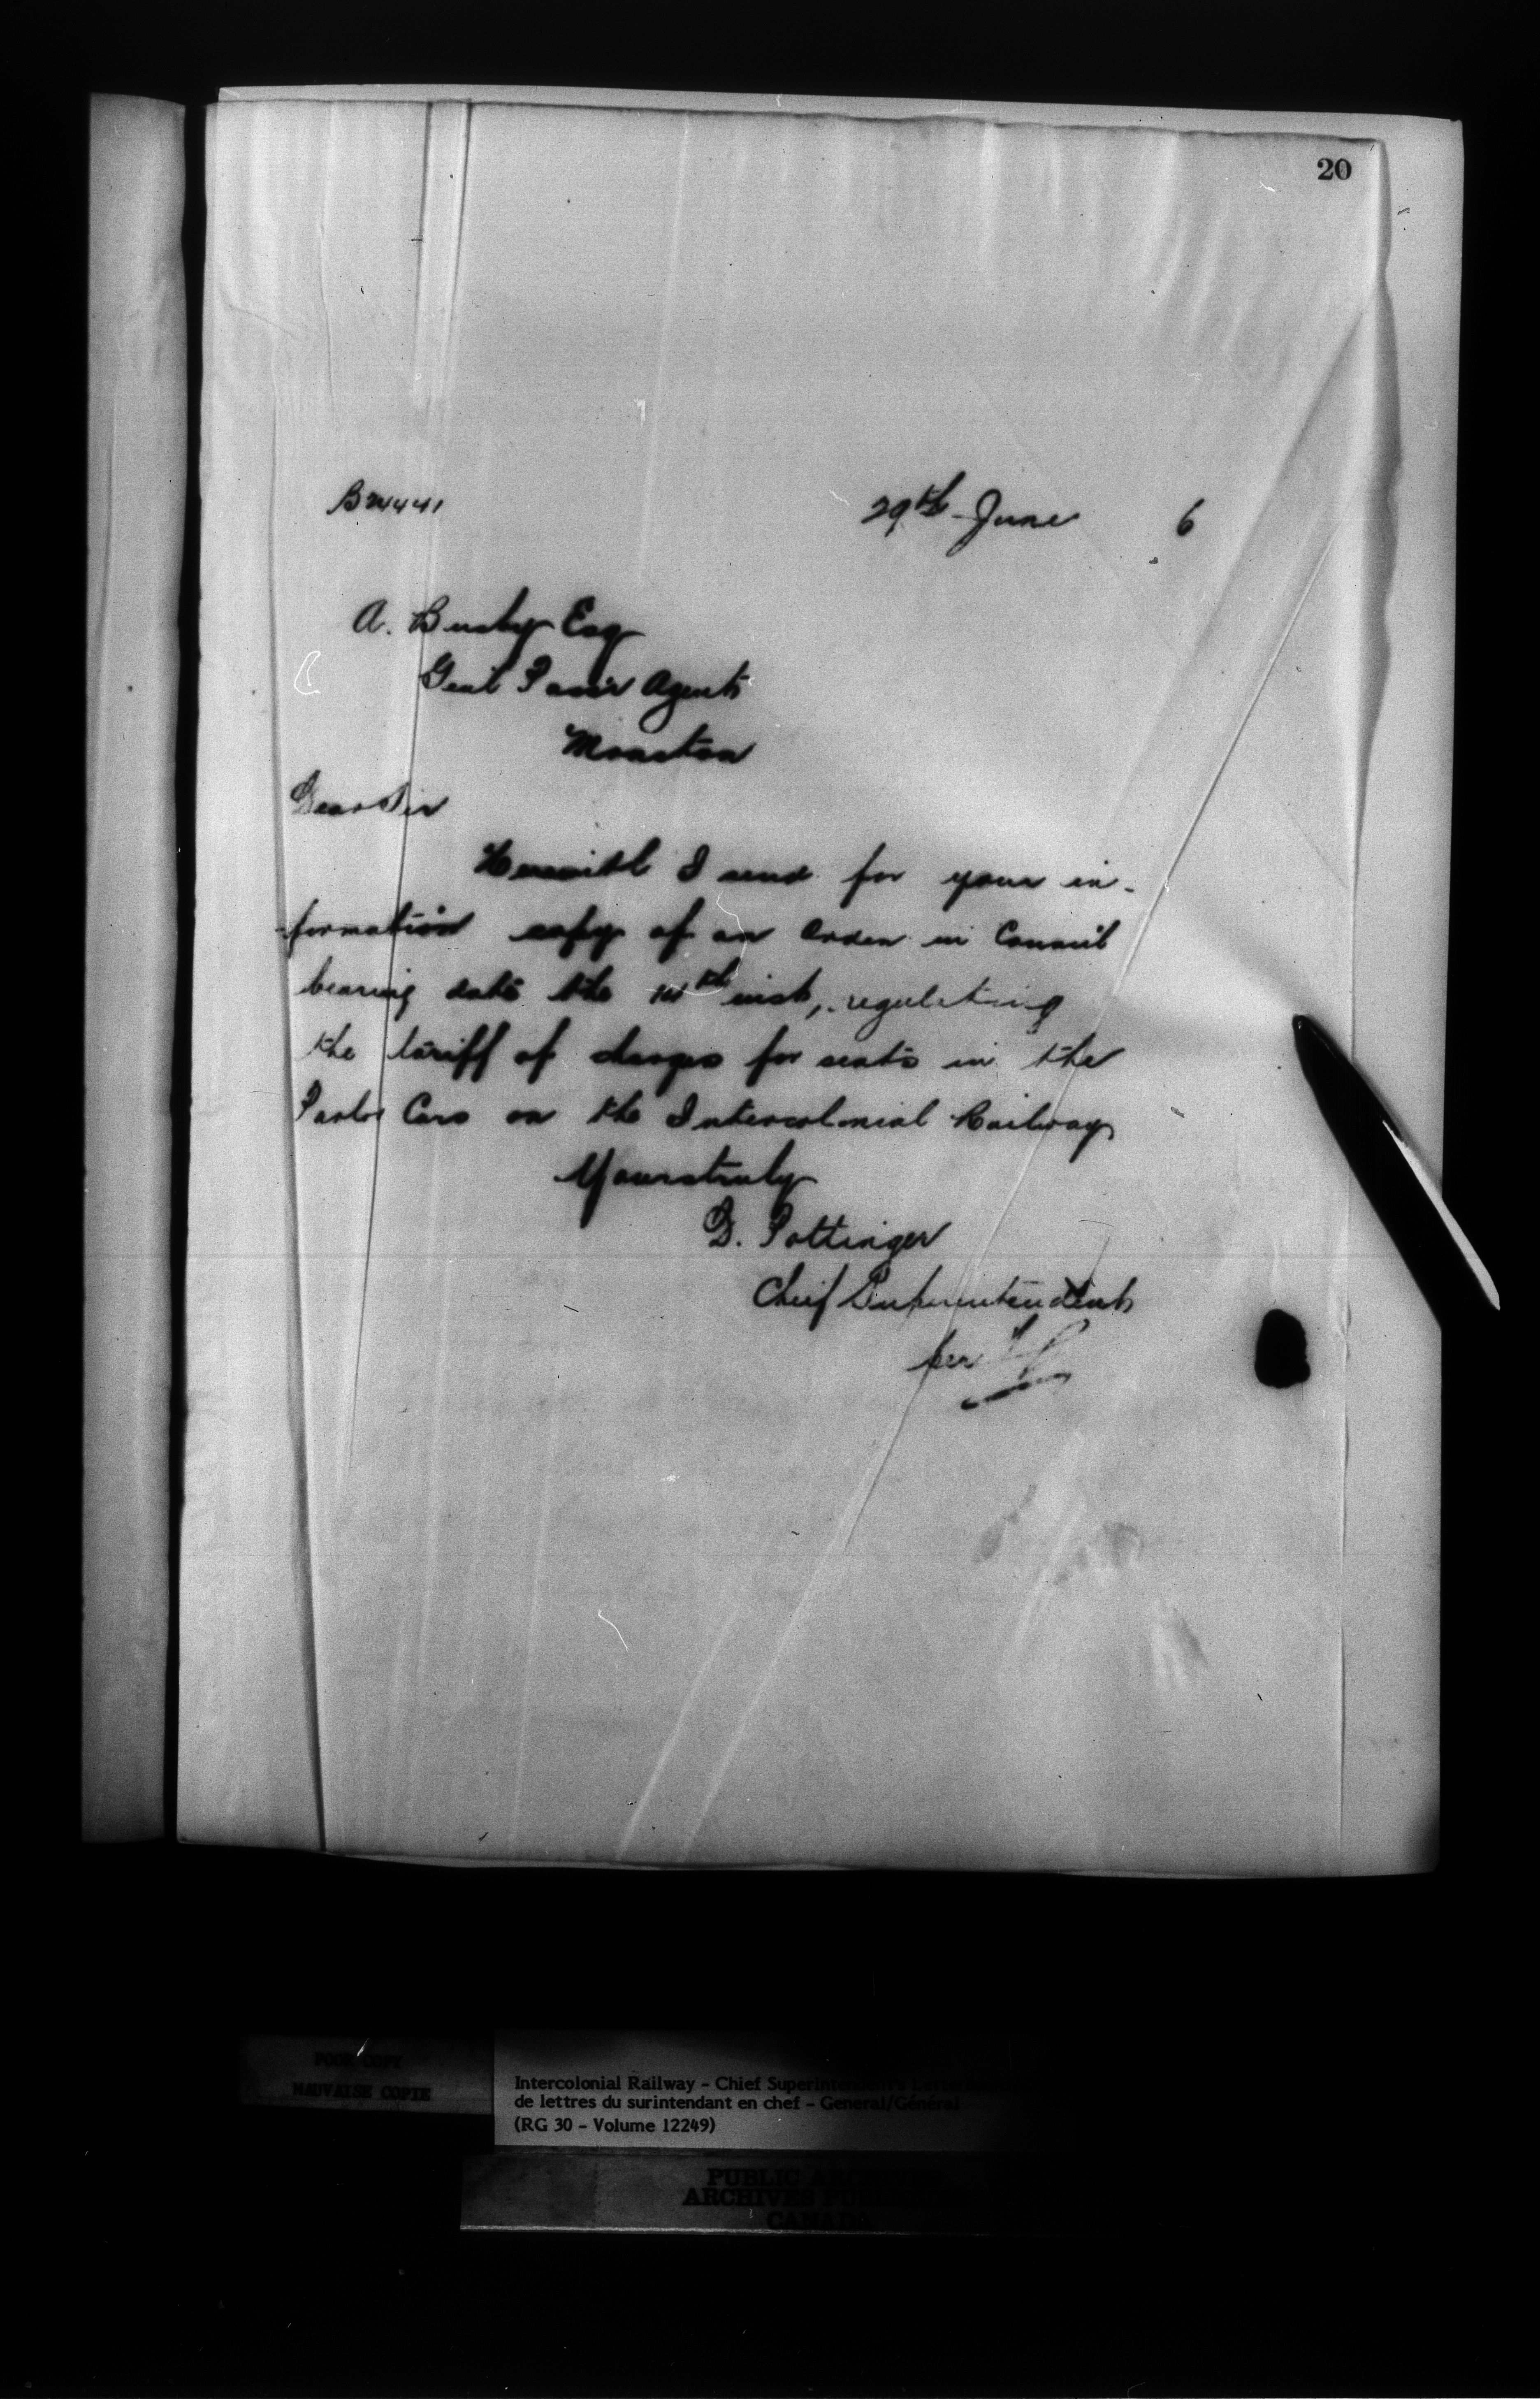 20
B24441
29th June 6
A. Busby Esq
Genl Passr Agent
Moncton
Dear Sir
Herewith I send for your in-
formation copy of an Order in Council
bearing date the 14th inst, regulating
the tariff of charges for seats in the
Parlor Cars on the Intercolonial Railway
Yours truly
D. Pottinger
Chief Superintendent
per
POOR COPY
MAUVAISE COPIE
Intercolonial Railway – Chief Superintendent's
de lettres du surintendant en chef – General/Général
(RG 30 – Volume 12249)
PUBLIC ARCHIVES
ARCHIVES PUBLIQUES
CANADA